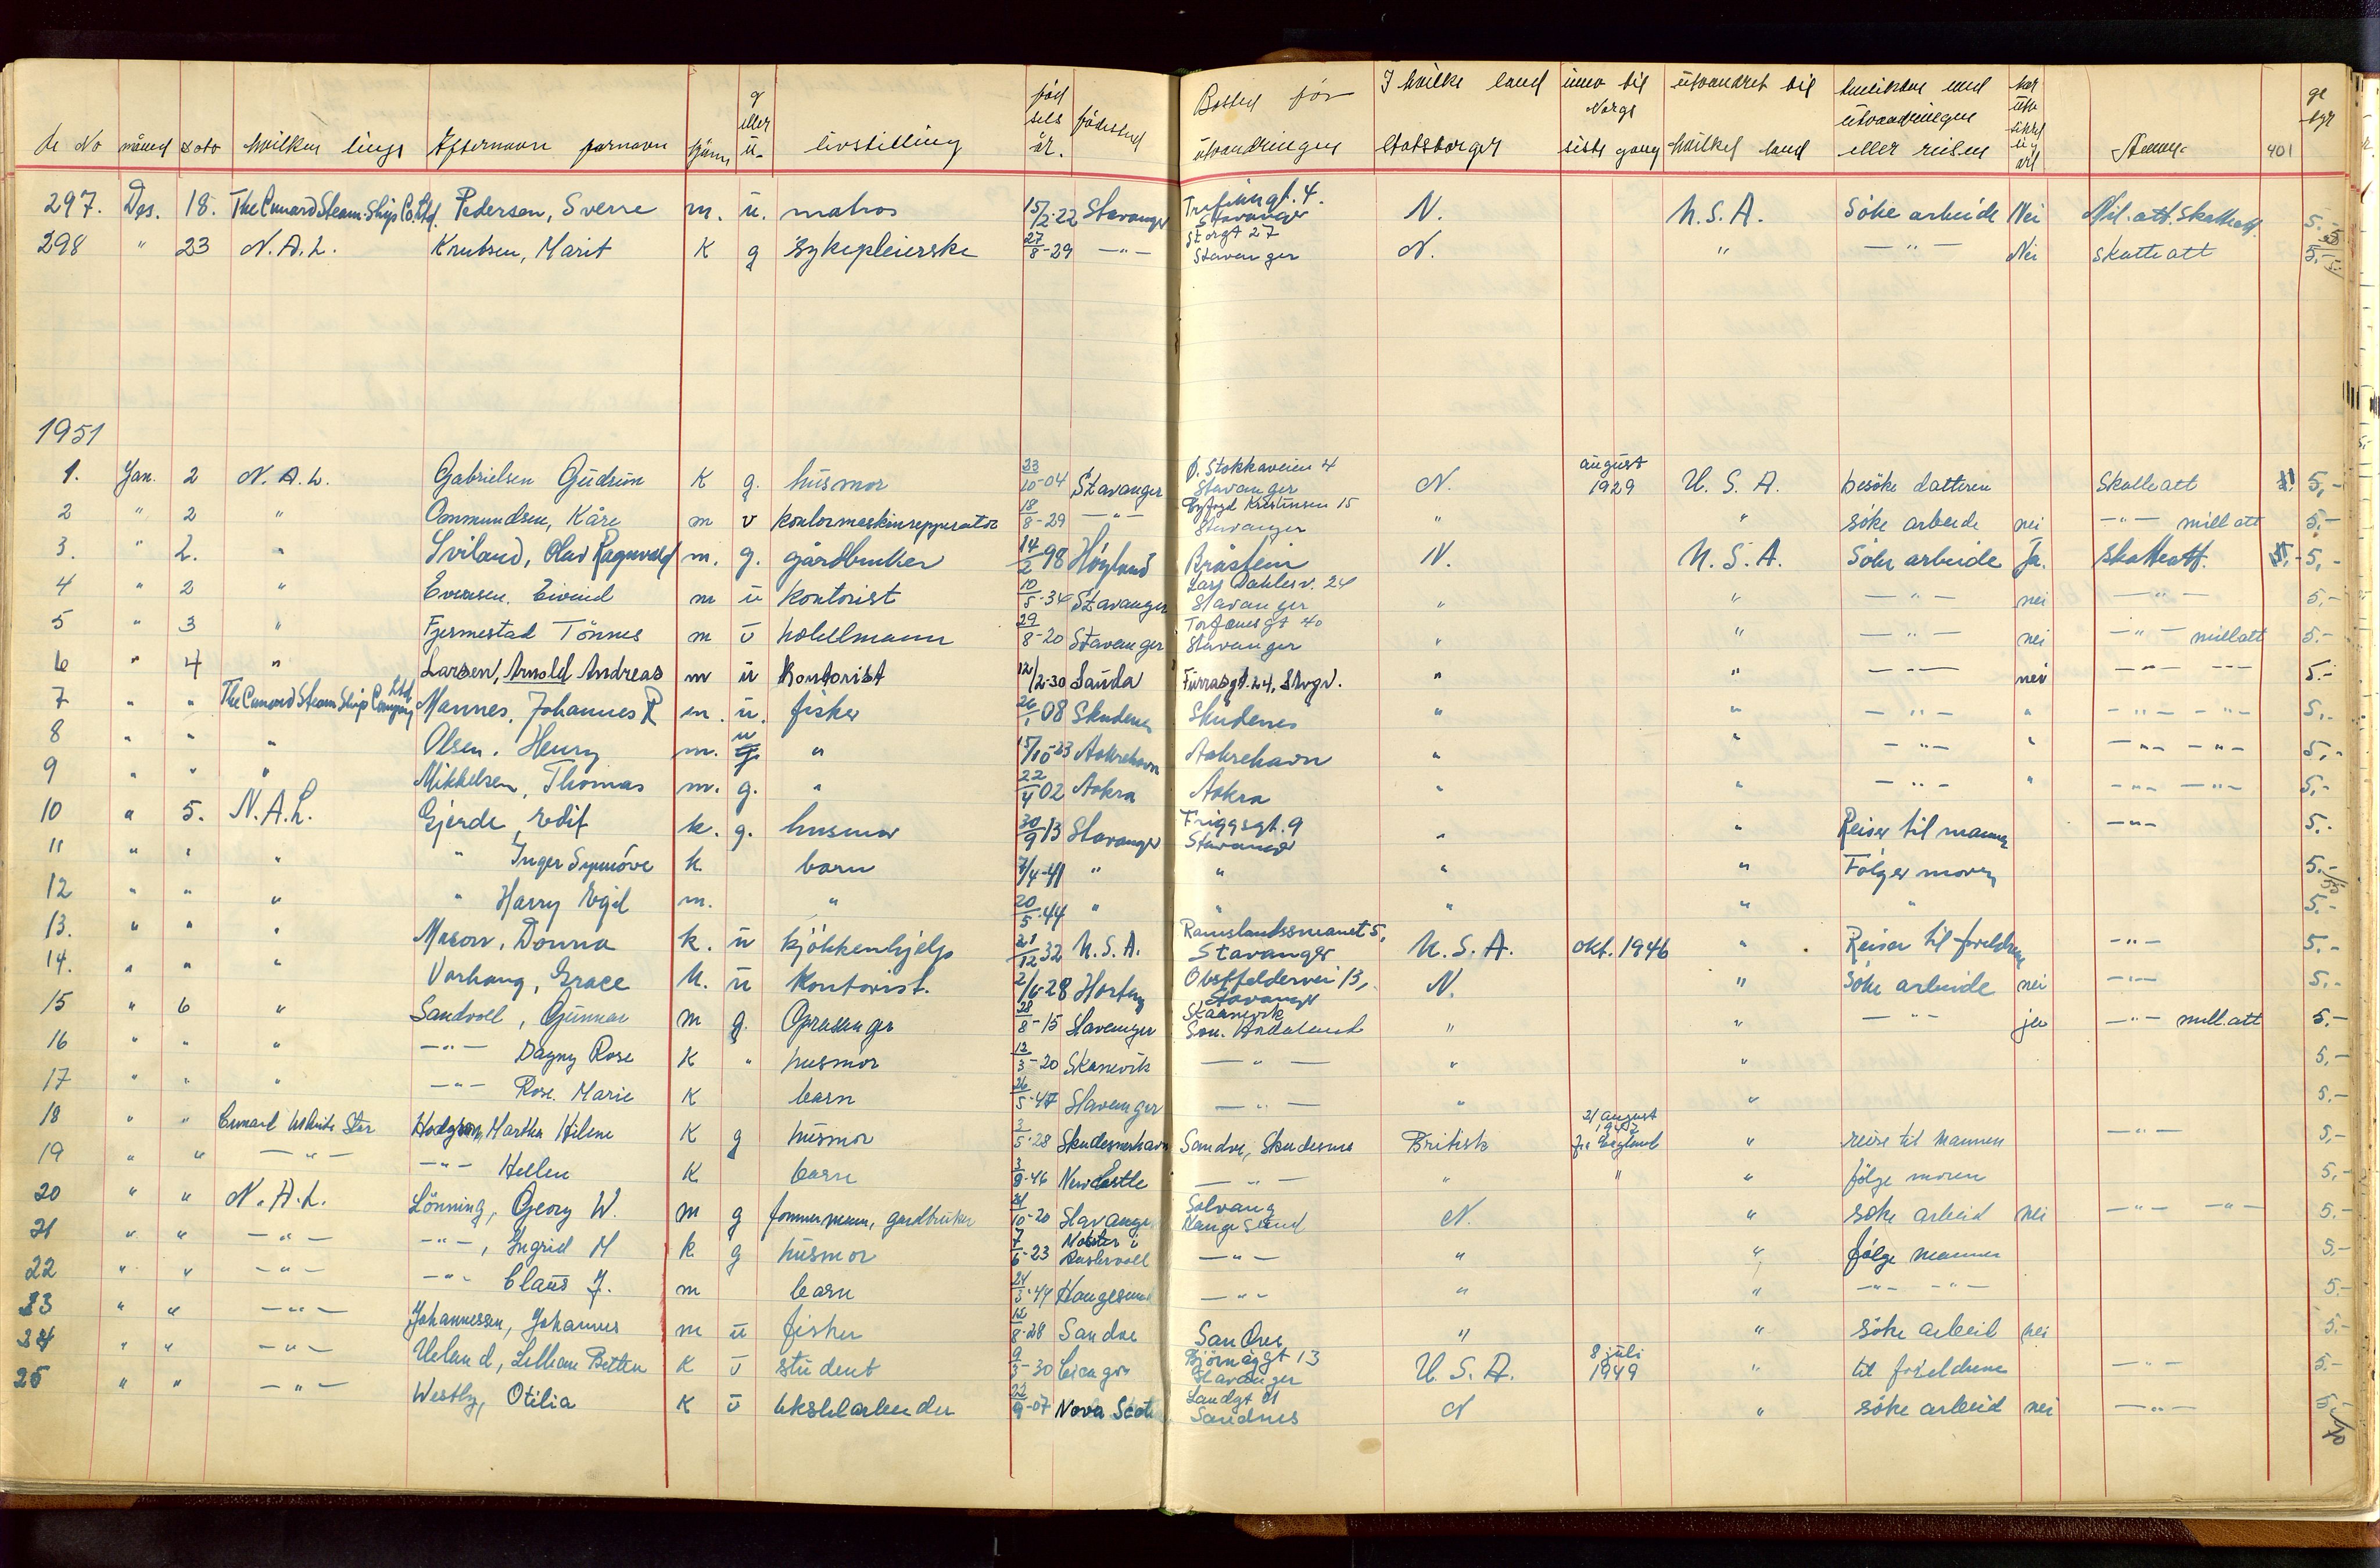 401
297. Des. 18. The Cunard Steam-Ship Co. Ltd. Pedersen, Sverre m. ü. matros 15/2-22 Stavanger Stavanger N. U.S.A. Söke arbeide Nei Mil. att. Skatteatt. 5.-
298 " 23 N.A.L. Knutsen, Marit K g sykepleierske 27/8-29 —"— Storgt 27 Stavanger N. " —"— Nei skatteatt 5.-
1951
1. Jan. 2 N.A.L. Gabrielsen Gudrun K g. husmor 23/10-04 Stavanger Ø. Stokkaveien 4 Stavanger N. august 1929 U.S.A. besöke datteren Skatteatt 5,-
2 " 2 " Ommundsen, Kåre m v kontormaskinreparatör 18/8-29 —"— Kristinsen 15 Stavanger " " söke arbeide nei —"— mill att 5.-
3. " 2. " Sviland, Olav Ragnvald m. g. gårdbruker 14/2 98 Höyland Bråstein N. U.S.A. Söke arbeide Ja. skatteatt. 5,-
4 " 2 " Evensen. Eivind m ü kontorist 10/5-34 Stavanger Lars Dahlesv. 24 Stavanger " " —"— nei —"— 5.-
5 " 3 " Fjermestad Tönnes m ü hotellmann 29/8-20 Stavanger Torfæusgt 40 Stavanger " " —"— nei —"— mill att 5.-
6 " 4 " Larsen, Arnold Andreas m ü Kontorist 12/2-30 Sauda Furrasgt. 24, Stvgr. " " —"— nei —"— —"— 5.-
7 " " The Cunard Steam Ship Company Ltd Mannes, Johannes R m. ü. fisker 26/1 08 Skudenes Skudenes " " —"— " —"— —"— 5.-
8 " " " Olsen. Henry m. u " 15/10-23 Aakrehavn Aakrehavn " " —"— " —"— —"— 5.-
9 " " " Mikkelsen, Thomas m. g. " 22/4 02 Aakra Aakra " " —"— " —"— —"— 5.-
10 " 5. N.A.L. Gjerde, Edit k. g. husmor 30/9-13 Stavanger Friggsgt. 9 Stavanger " " Reiser til mannen —"— 5.-
11 " " " " Inger Synnöve k. barn 7/4-41 " " " " Fölger moren 5.-
12 " " " " Harry Egil m. " 20/5-44 " " " " " 5.-
13. " " " Mason, Donna k. ü kjökkenhjelp 21/12 32 U.S.A. Ramslandssmauet 5, Stavanger U.S.A. okt. 1946 " Reiser til foreldrene —"— 5.-
14. " " " Vorhaug, Grace k. ü kontorist. 2/6-28 Horten Obstfeldervei 13, Stavanger N. " Söke arbeide nei —"— 5.-
15 " 6 " Sandvoll, Gunnar m g. 28/8-15 Stavanger Skaanevik Sön. Hordaland " " —"— ja —"— mill. att 5.-
16 " " " —"— Dagny Rose K " husmor 12/3-20 Skånevik —"— " " 5,-
17 " " " —"— Rose. Marie K barn 26/5-47 Stavanger —"— " " 5.-
18 " " Cunard White Star Hodgson, Martha Helene K g husmor 3/5-28 Skudesneshavn Sandve, Skudesnes Britisk 21 august 1947 fra England " reise til mannen —"— 5,-
19 " " —"— —"— Hellen K barn 3/9-46 Newcastle —"— " " " fölge moren 5,-
20 " " N.A.L. Lönning, Georg W. m g tömmermann, gardbruker 21/10-20 Stavanger Solvang Haugesund N. " söke arbeid nei —"— —"— 5.-
21 " " —"— —"—, Ingrid M k g husmor 7/6-23 —"— " " fölge mannen 5.-
22 " " —"— —"— Claus J. m barn 24/3-49 Haugesund —"— " " —"— —"— 5.-
23 " " —"— Johannessen, Johannes m ü fisker 12/8-28 Sandve Sandve " " söke arbeid nei 5.-
24 " " —"— Ueland, Lillian K ü student 9/3-30 Cicago Bjørnøygt 13 Stavanger U.S.A. 8 juli 1949 " til foreldrene —"— 5.-
25 " " —"— Westby, Otilia K ü tekstilarbeider 22/9-07 Nova Scotia Landgt 21 Sandnes N " söke arbeid nei —"— 5.-